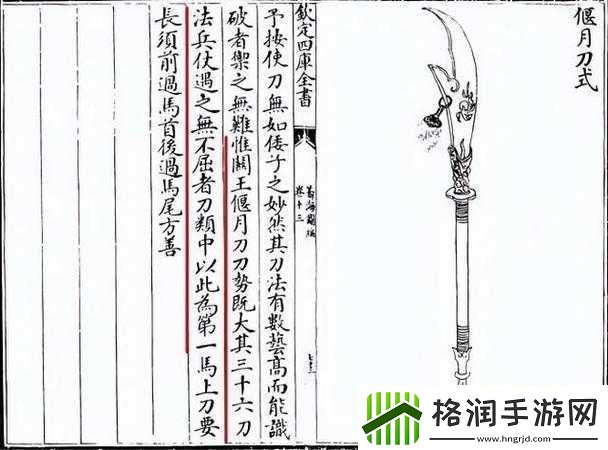 偃月刀式
欽定四庫全書
籌海圖編
卷十三
予按使刀無如倭子之妙然其刀法有數藝高而能識
破者禦之無難惟關王偃月刀刀勢既大其三十六刀
法兵仗遇之無不屈者刀類中以此為第一馬上刀要
長須前過馬首後過馬尾方善
格润手游网
www.hngrjd.com